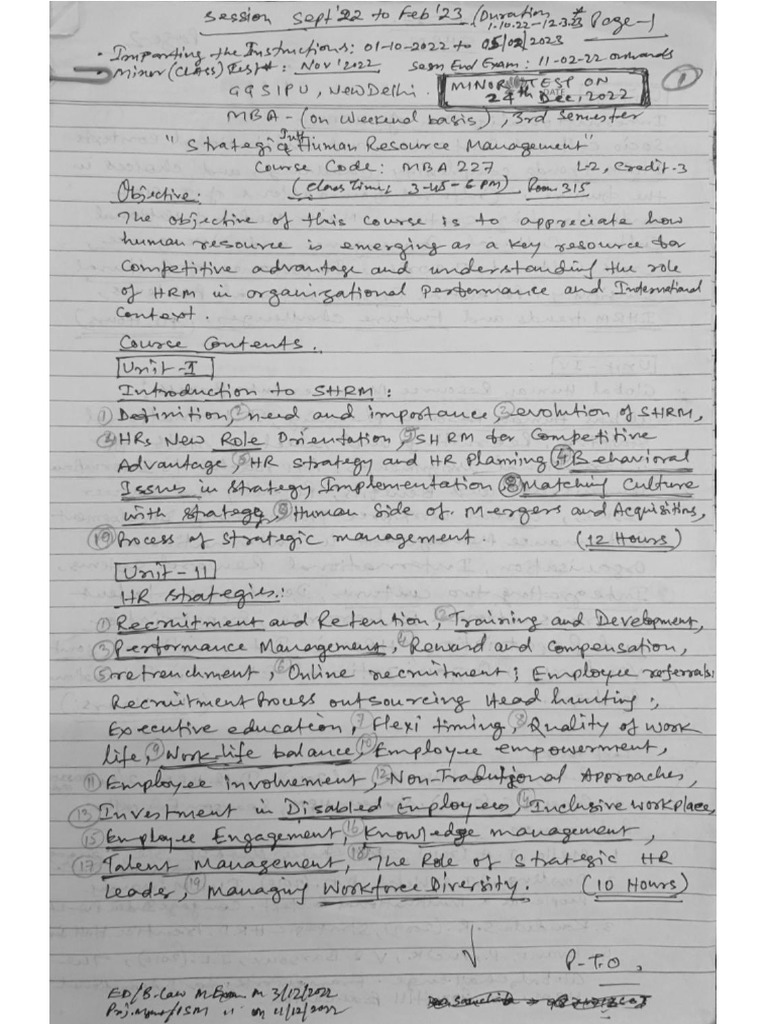 Session Sept'22 to Feb'23 (Duration 1-10-22-12.3.23* Page-1
• Imparting the Instructions: 01-10-2022 to 05/02/2023
• Minor (CLASS) Test#: Nov'2022 Sem End Exam: 11-02-22 onwards
GGSIPU, New Delhi. MINOR TEST ON 24th Dec, 2022 ①
MBA - (on weekend basis), 3rd Semester
"Strategic Int Human Resource Management"
Course Code: MBA 227 L-2, Credit-3
Objective: (Class Time: 3-45-6 PM) Room 315
The objective of this course is to appreciate how
human resource is emerging as a key resource for
Competitive advantage and understanding the role
of HRM in organizational performance and International
Context.
Course Contents.
Unit-I
Introduction to SHRM:
① Definition, ② need and importance, ③ evolution of SHRM,
HRs New Role Orientation, SHRM for Competitive
Advantage, HR Strategy and HR Planning, Behavioral
Issues in Strategy Implementation, ⑧ Matching Culture
with strategy, Human Side of Mergers and Acquisitins,
⑩ Process of Strategic management. (12 Hours)
Unit-II
HR Strategies:
① Recruitment and Retention, ② Training and Development,
③ Performance Management, ④ Reward and compensation,
⑤ retrenchment, ⑥ Online recruitment; Employee referrals:
Recruitment Process outsourcing Head hunting:,
Executive education, ⑦ Flexi timing, ⑧ Quality of work
life, ⑨ Work-life balance, ⑩ Employee empowerment,
⑪ Employee involvement, ⑫ Non-Traditional Approaches,
⑬ Investment in Disabled Employees, ⑭ Inclusive workplace,
⑮ Employee Engagement, ⑯ Knowledge management,
⑰ Talent Management, ⑱ The Role of Strategic HR
Leader, ⑲ Managing Workforce Diversity. (10 Hours)
P-T.O,
ED/B.Law M.Exam on 3/12/2022
on 11/12/2022